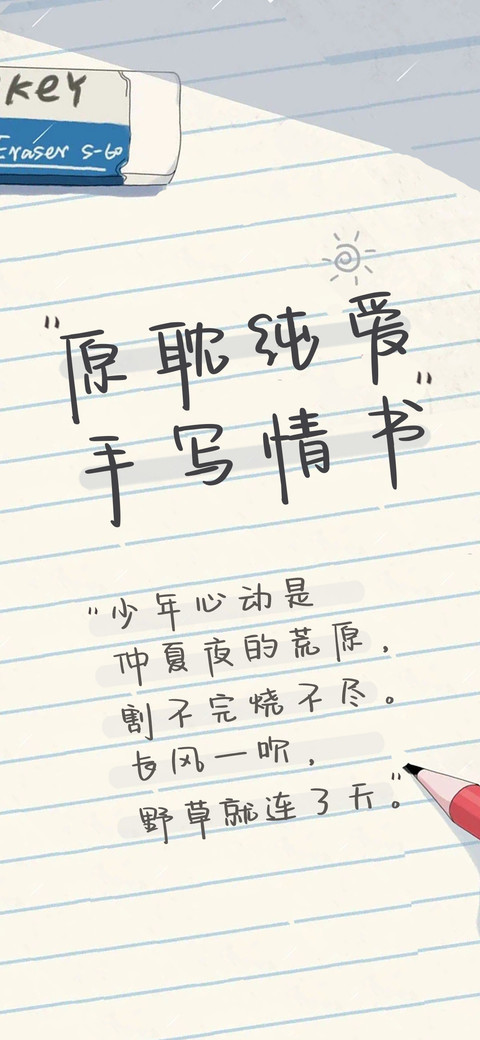 KEY
Eraser S-60
"原耽纯爱
手写情书"
"少年心动是
仲夏夜的荒原，
割不完烧不尽。
长风一吹，
野草就连了天。"